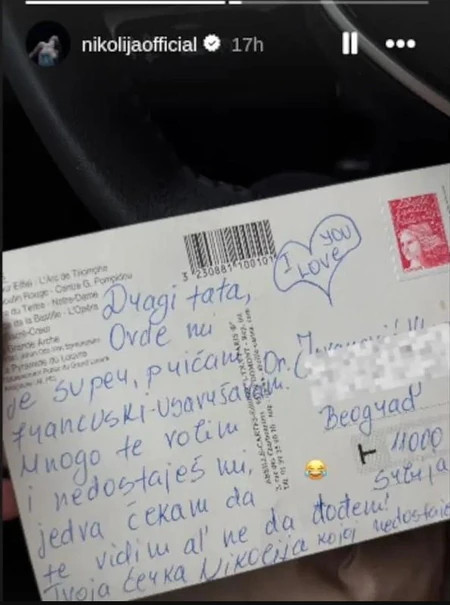 nikolijaofficial 17h
3 230881 100101
I LOVE YOU
L'Arc de Triomphe
Moulin Rouge - Centre G. Pompidou
du Tertre - Notre-Dame
de la Bastille - L'Opéra
Sacré-Coeur
Grande Arche
Pyramide du Louvre
Dragi tata,
Ovde mi
je super, pričam
francuski-usavršavam.
Mnogo te volim
i nedostaješ mi,
jedva čekam da
te vidim al' ne da dođem!
Tvoja ćerka Nikolija kojoj nedostaje
Dr.
Beograd
11000
Srbija